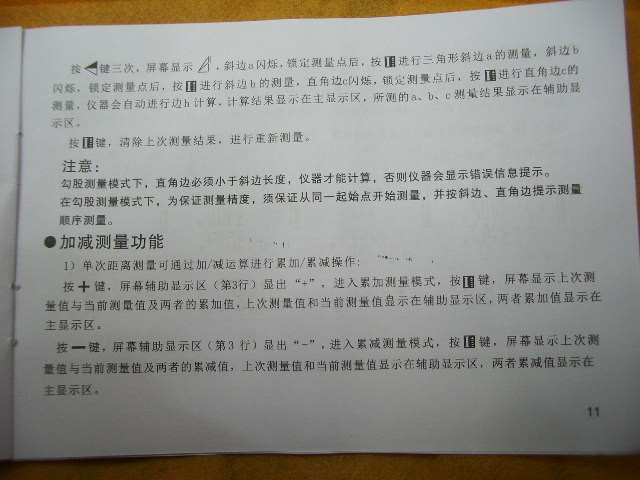 按键三次，屏幕显示，斜边a闪烁，锁定测量点后，按进行三角形斜边a的测量，斜边b
闪烁，锁定测量点后，按进行斜边b的测量，直角边c闪烁，锁定测量点后，按进行直角边c的
测量，仪器会自动进行边h计算，计算结果显示在主显示区，所测的a、b、c测量结果显示在辅助显
示区。
按键，清除上次测量结果，进行重新测量。
注意：
勾股测量模式下，直角边必须小于斜边长度，仪器才能计算，否则仪器会显示错误信息提示。
在勾股测量模式下，为保证测量精度，须保证从同一起始点开始测量，并按斜边、直角边提示测量
顺序测量。
●加减测量功能
1）单次距离测量可通过加/减运算进行累加/累减操作：
按＋键，屏幕辅助显示区（第3行）显出“+”，进入累加测量模式，按键，屏幕显示上次测
量值与当前测量值及两者的累加值，上次测量值和当前测量值显示在辅助显示区，两者累加值显示在
主显示区。
按－键，屏幕辅助显示区（第3 行）显出“-”，进入累减测量模式，按键，屏幕显示上次测
量值与当前测量值及两者的累减值，上次测量值和当前测量值显示在辅助显示区，两者累减值显示在
主显示区。
11